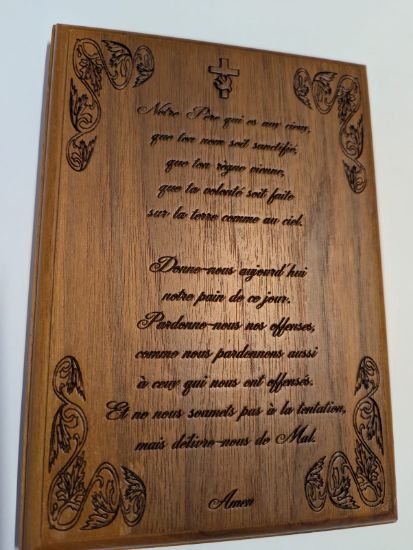 Notre Père qui es aux cieux,
que ton nom soit sanctifié,
que ton règne vienne,
que ta volonté soit faite
sur la terre comme au ciel.
Donne-nous aujourd'hui
notre pain de ce jour.
Pardonne-nous nos offenses,
comme nous pardonnons aussi
à ceux qui nous ont offensés.
Et ne nous soumets pas à la tentation,
mais délivre-nous de Mal.
Amen